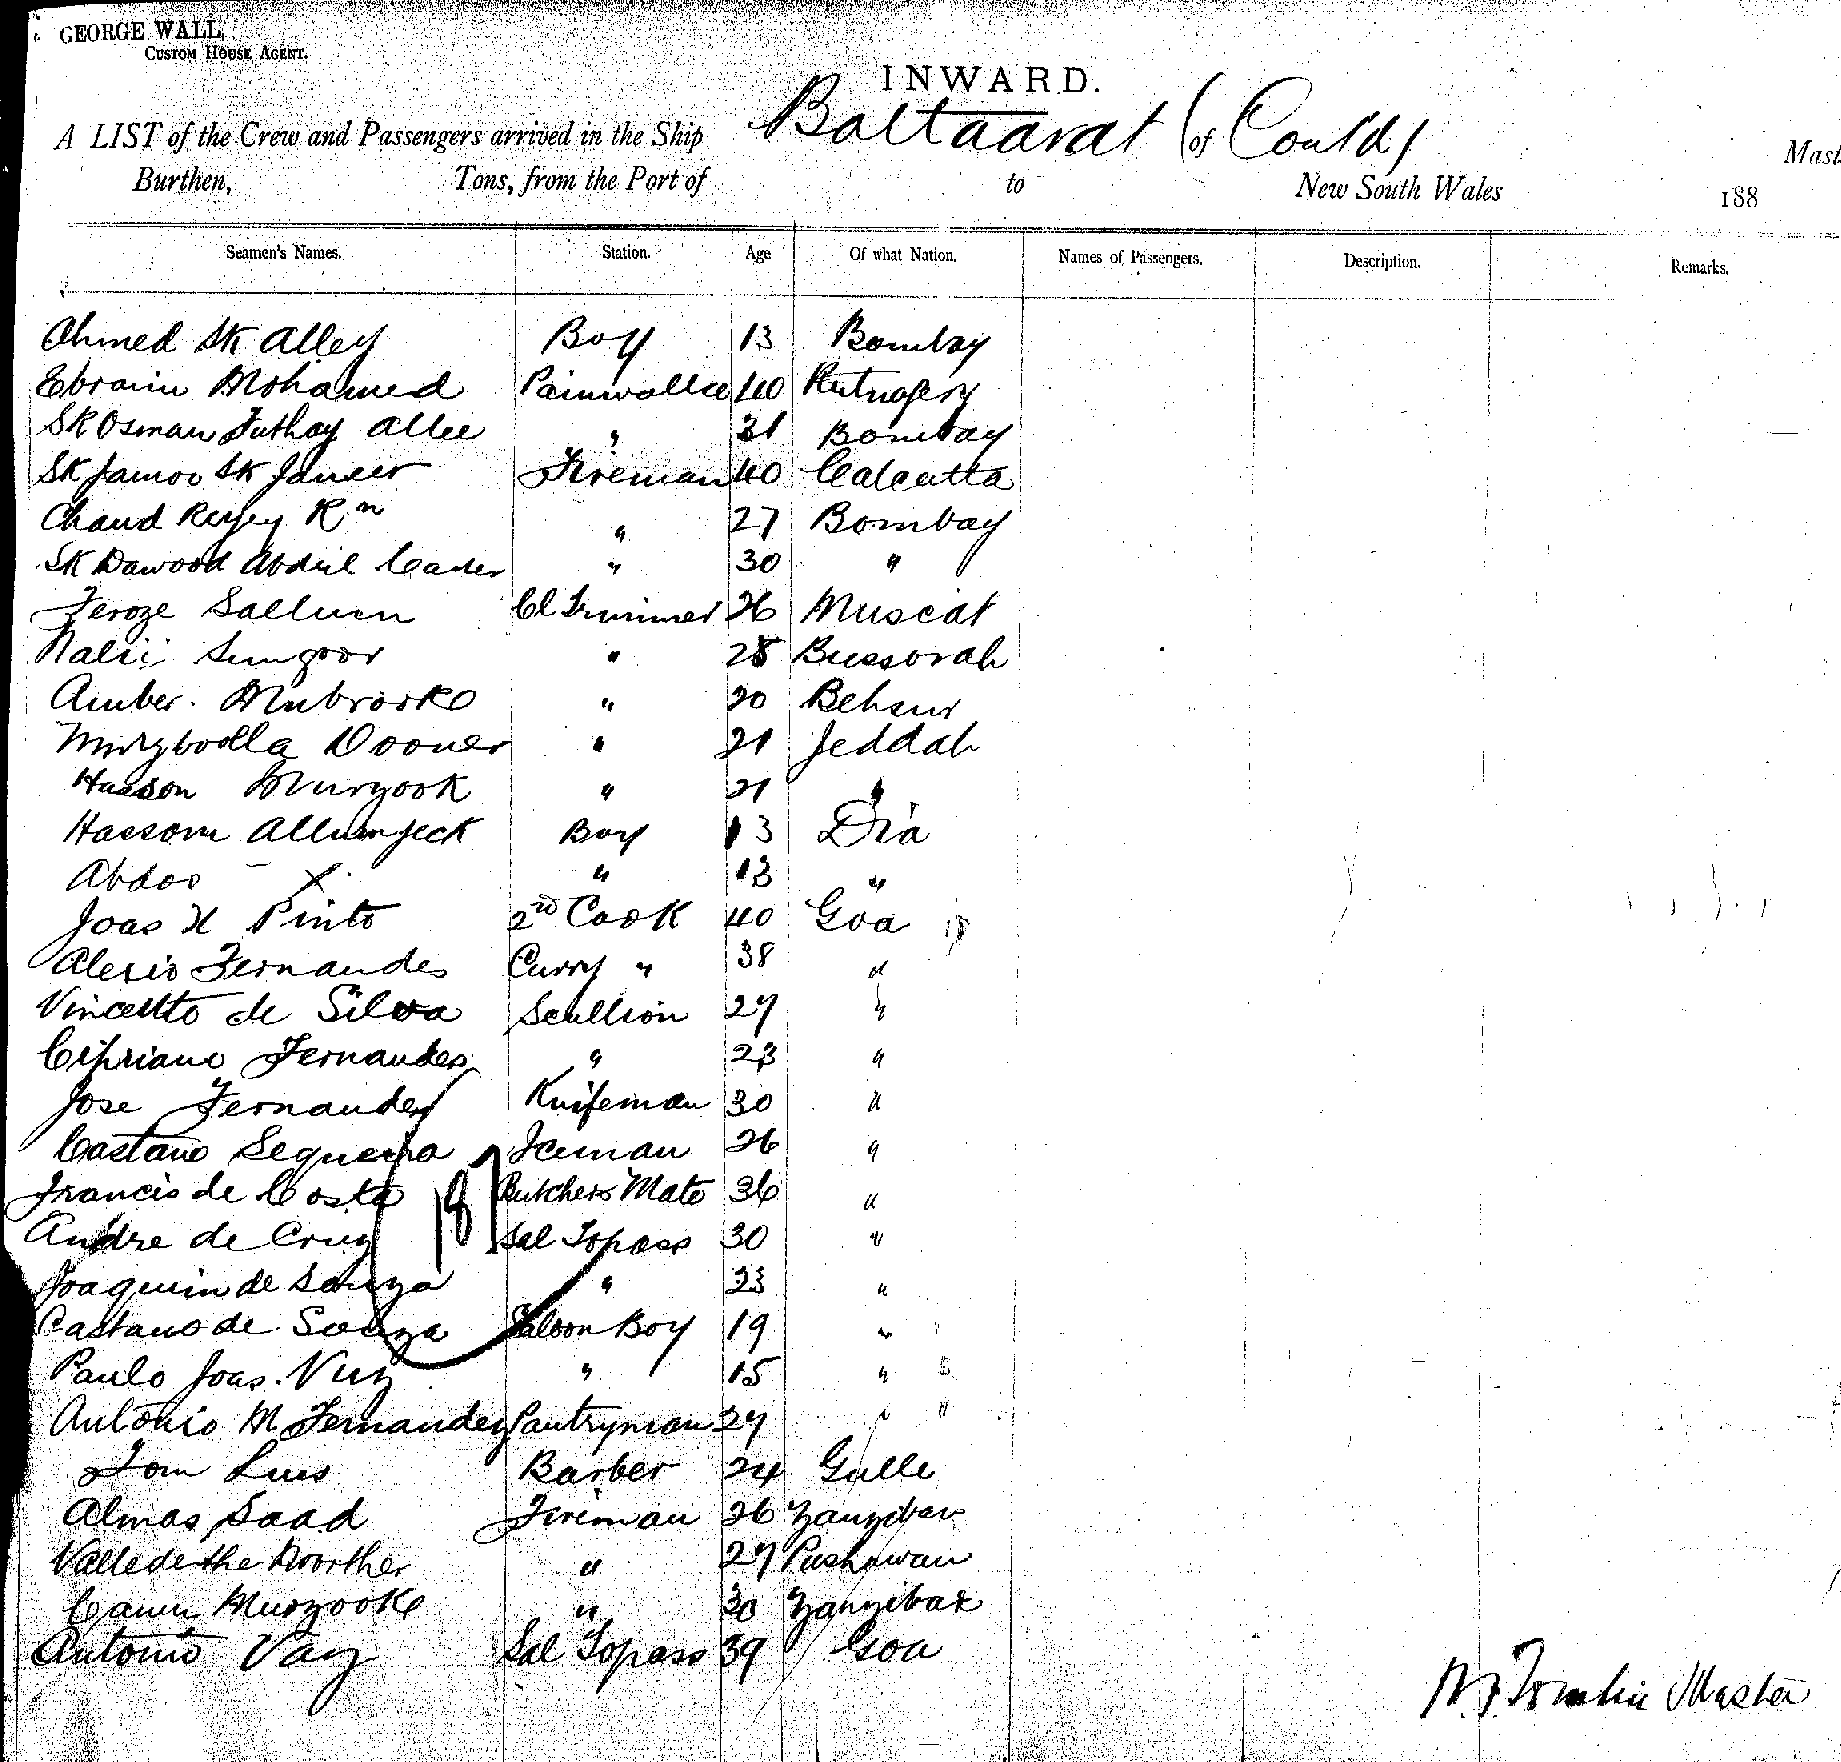 GEORGE WALL,
CUSTOM HOUSE AGENT.
INWARD.
A LIST of the Crew and Passengers arrived in the Ship Ballaarat (of Contd) Mast
Burthen, Tons, from the Port of to New South Wales 188
Seamen's Names. Station. Age Of what Nation. Names of Passengers. Description. Remarks.
Ahmed Sk Alley Boy 13 Bombay
Ebraim Mohamed Painwallee 40 Rutnagery
Sk Osman Futhay Allee " 21 Bombay
Sk Jamoo Sk Janeer Fireman 40 Calcutta
Chand Rn " 27 Bombay
Sk Dawood Abdul Cader " 30 "
Feroze Sallum Cl Trimmer 26 Muscat
Sungoor " 28 Bussorah
Amber Mubrooke " 20
Dooner " 21 Jeddah
Hasson Murzook " 21 "
Hassom Allumjeck Boy 13 Dia
Abdos X " 13 "
Joas X Pinto 2nd Cook 40 Goa 18
Alexio Fernandes Curry " 38 "
Vincento de Silva Scullion 27 "
Cipriano Fernandes " 23 "
Jose Fernandez Knifeman 30 "
Caetano Sequeira Iceman 26 "
Francis de Costa 18 Butchers Mate 36 "
Andre de Cruz Sal Topass 30 "
Joaquim de Souza " 23 "
Caetano de Souza Saloon Boy 19 "
Paulo Joas. Vuz " 15 "
Antonio M Fernandez Pantryman 27 "
Tom Luis Barber 24 Galle
Almas Saad Fireman 26 Zanzibar
" 27
Murzooke " 30 Zanzibar
Antonio Vaz Sal Topass 39 Goa
Tomlin Master